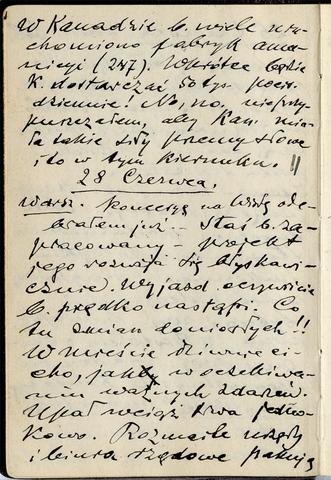 W Kanadzie b. wiele uru-
chomiono fabryk amu-
nicji (247). Wkrótce będzie
K. dostarczać 50 tys. poci.
dziennie! No, no, nieprzy-
puszczałem, aby Kan. mia-
ła takie siły przemysłowe
i to w tym kierunku. ||
28 Czerwca.
Warsz. Koncesję na Wisłę ode-
brałem już. - Staś b. za-
pracowany - projekt
jego rozwija się błyskawi-
cznie. Wyjazd oczywiście
b. prędko nastąpi. Co
tu zmian doniosłych!!
W mieście dziwnie ci-
cho, jakby w oczekiwa-
niu ważnych zdarzeń.
Upał wciąż trwa jedna-
kowo. Rozmaite urzędy
i biura rządowe pakują